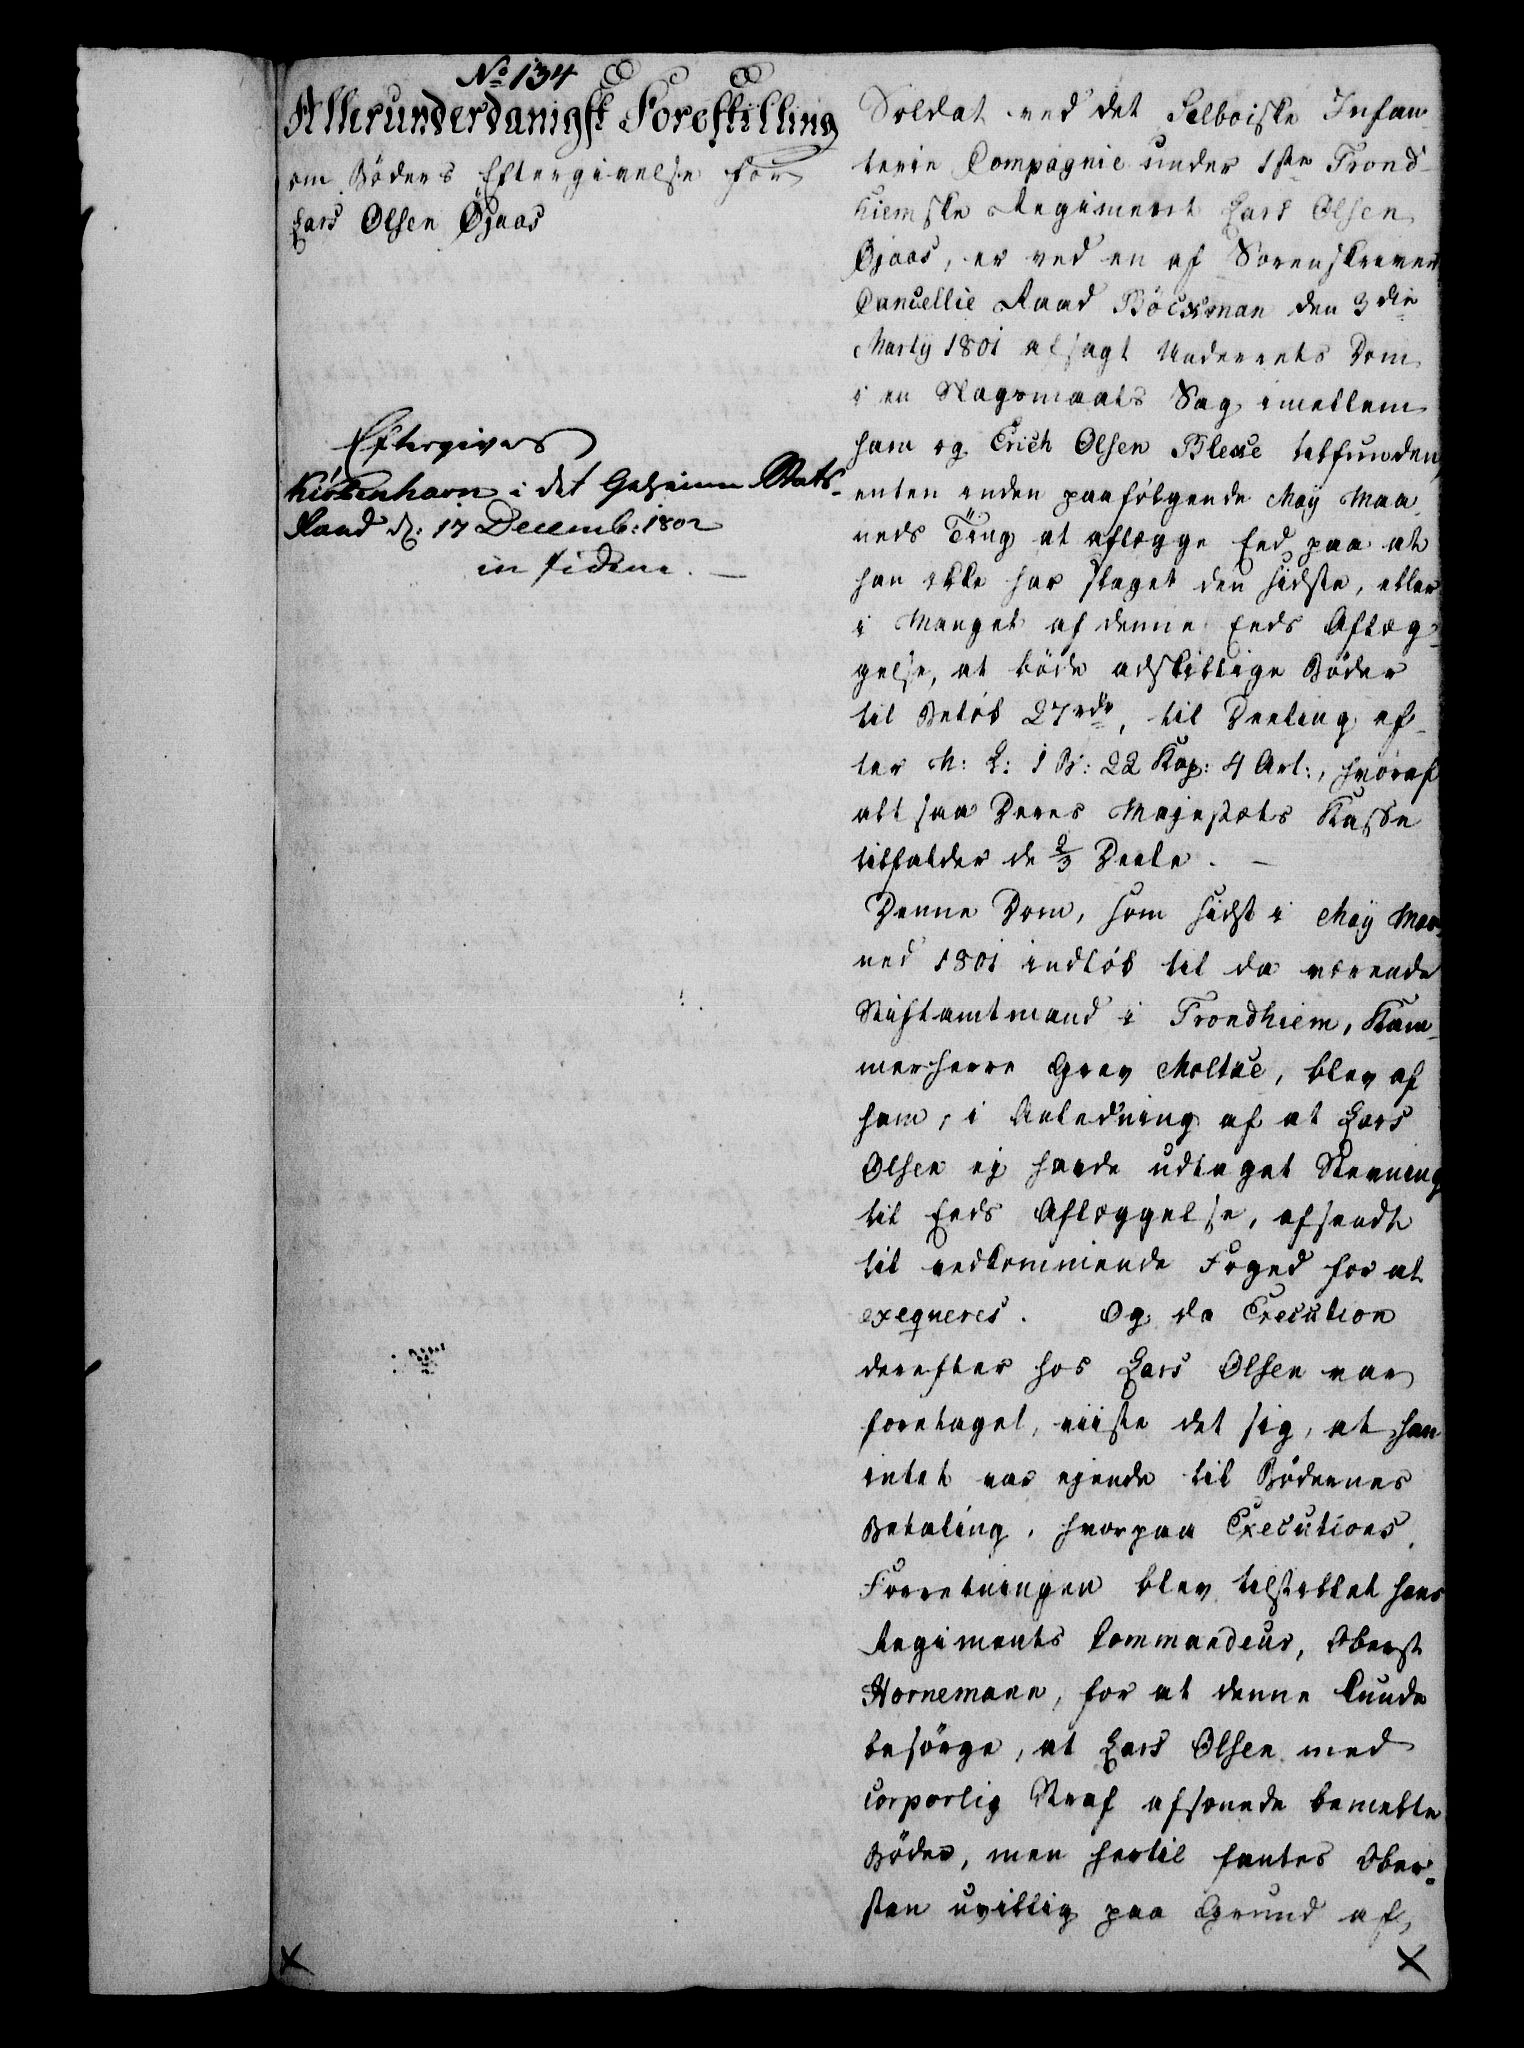 No 134
Allerunderdanigst Forestilling
om Böders Eftergivelse for
Lars Olsen Øjaas
Eftergives
Kiöbenhavn i det Geheime Stats-
Raad d: 17 Decemb: 1802
in fidem.
Soldat ved det Selboiske Infan-
terie Compagnie under 1ste Trond-
hiemske Regiment Lars Olsen
Øjaas, er ved en af Sorenskriver
Cancellie Raad Böckman den 3die
Martij 1801 afsagt Underrets Dom
i en Slagsmaals Sag imellem
ham og Erich Olsen Blexe tilfunden,
enten inden paafölgende Maij Maa-
neds Ting at aflægge Eed paa at
han ikke har slaget den sidste, eller
i Mangel af denne Eeds Aflæg-
gelse, at böde adskillige Böder
til Belöb 27 rdr, til Deeling ef-
ter N: L: 1 B: 22 Kap: 4 Art:, hvoraf
altsaa Deres Majestæts Kasse
tilfalder de 2/3 Deele. —
Denne Dom, som sidst i Maij Maa-
ned 1801 indlöb til da værende
Stiftamtmand i Trondhiem, Kam-
merherre Grev Moltke, blev af
ham, i Anledning af at Lars
Olsen ej havde udtaget Stevning
til Eeds Aflæggelse, afsendt
til vedkommende Foged for at
exeqveres. Og da Execution
derefter hos Lars Olsen var
foretaget, viiste det sig, at han
intet var ejende til Bödernes
Betaling, hvorpaa Executions
Forretningen blev tilstillet hans
Regiments Commandeur, Oberst
Hornemann, for at denne kunde
besörge, at Lars Olsen med
corporlig Straf afsonede bemelte
Böder, men hertil fantes Ober-
sten uvillig paa Grund af